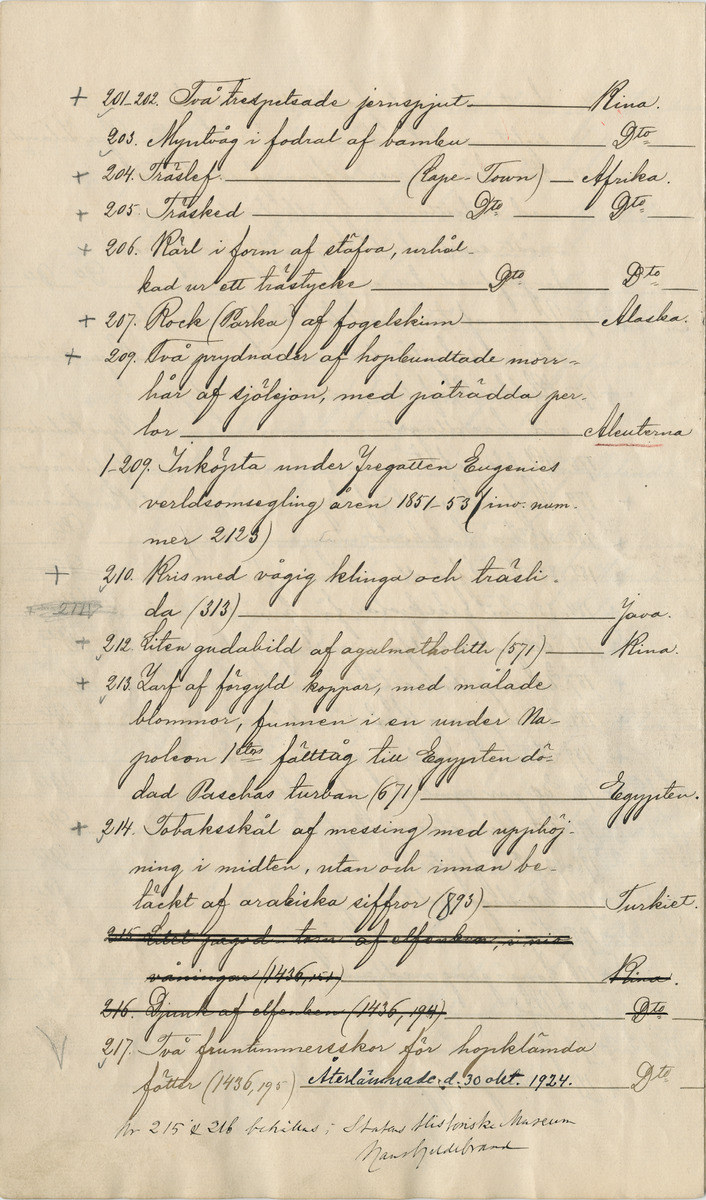 + 201-202. Två trespetsade jernspjut Kina.
203. Myntvåg i fodral af bambu Dto
+ 204. Träslef. (Cape-Town) Afrika.
+ 205. Träsked Dto Dto
+ 206. Kärl i form af stäfva, urhål-
kad ur ett trästycke Dto Dto
+ 207. Rock (Parka) af fogelskinn Alaska.
+ 209. Två prydnader af hopbundtade morr-
hår af sjölejon, med påträdda per-
lor Aleuterna
1-209. Inköpta under Fregatten Eugenies
verldsomsegling åren 1851-53 (inv. num-
mer 2123)
+ 210. Kris med vågig klinga och träsli-
211 da (313) Java.
+ 212. Liten gudabild af agalmatholith (571) Kina.
+ 213. Zarf af förgyld koppar, med målade
blommor, funnen i en under Na-
poleon 1stes fälttåg till Egypten dö-
dad Paschas turban (671) Egypten.
+ 214. Tobaksskål af messing med upphöj-
ning i midten, utan och innan be-
täckt af arabiska siffror (893) Turkiet.
215. Litet pagod-torn af elfenben, i nio
våningar (1436,151) Kina.
216. Djunk af elfenben (1436,194) Dto
217. Två fruntimmersskor för hopklämda
fötter (1436,195) Återlämnade d. 30 okt. 1924. Dto
Nr 215 & 216 behållas i Statens Historiska Museum
Hans Hildebrand